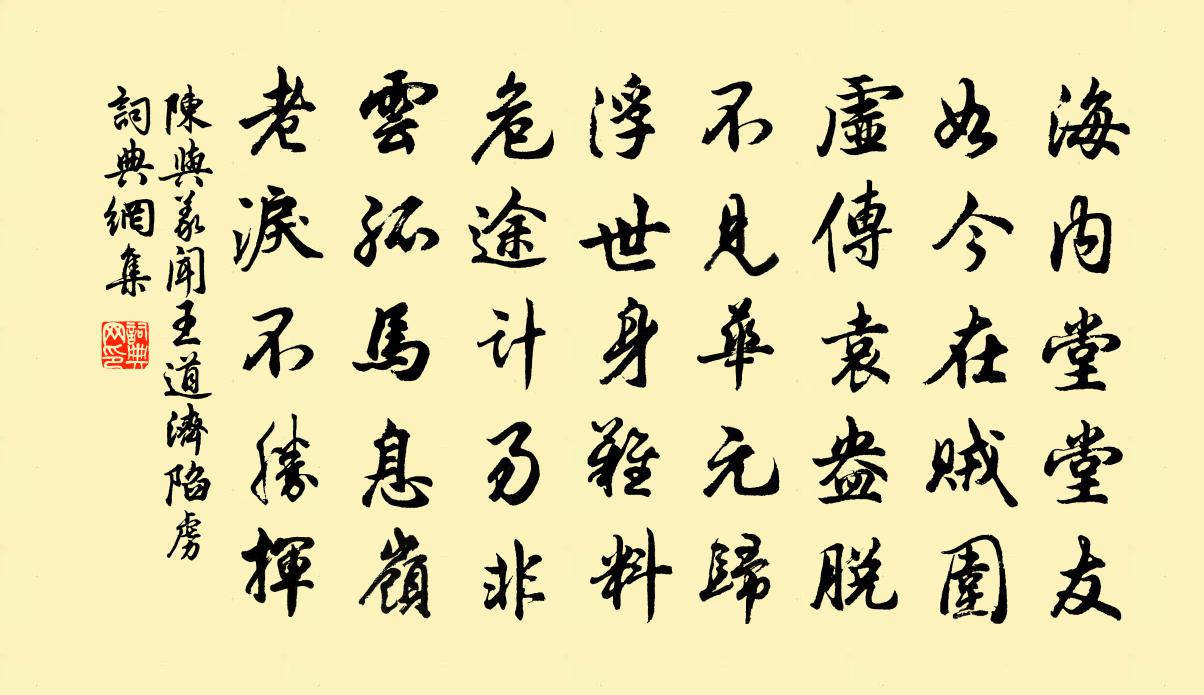 海内堂堂友
如今在贼圍
虛傳袁盎脫
不見華元歸
浮世身難料
危途计易非
雲孤馬息嶺
老淚不勝揮
陳與義聞王道濟陷虜
詞典網集
詞典网印